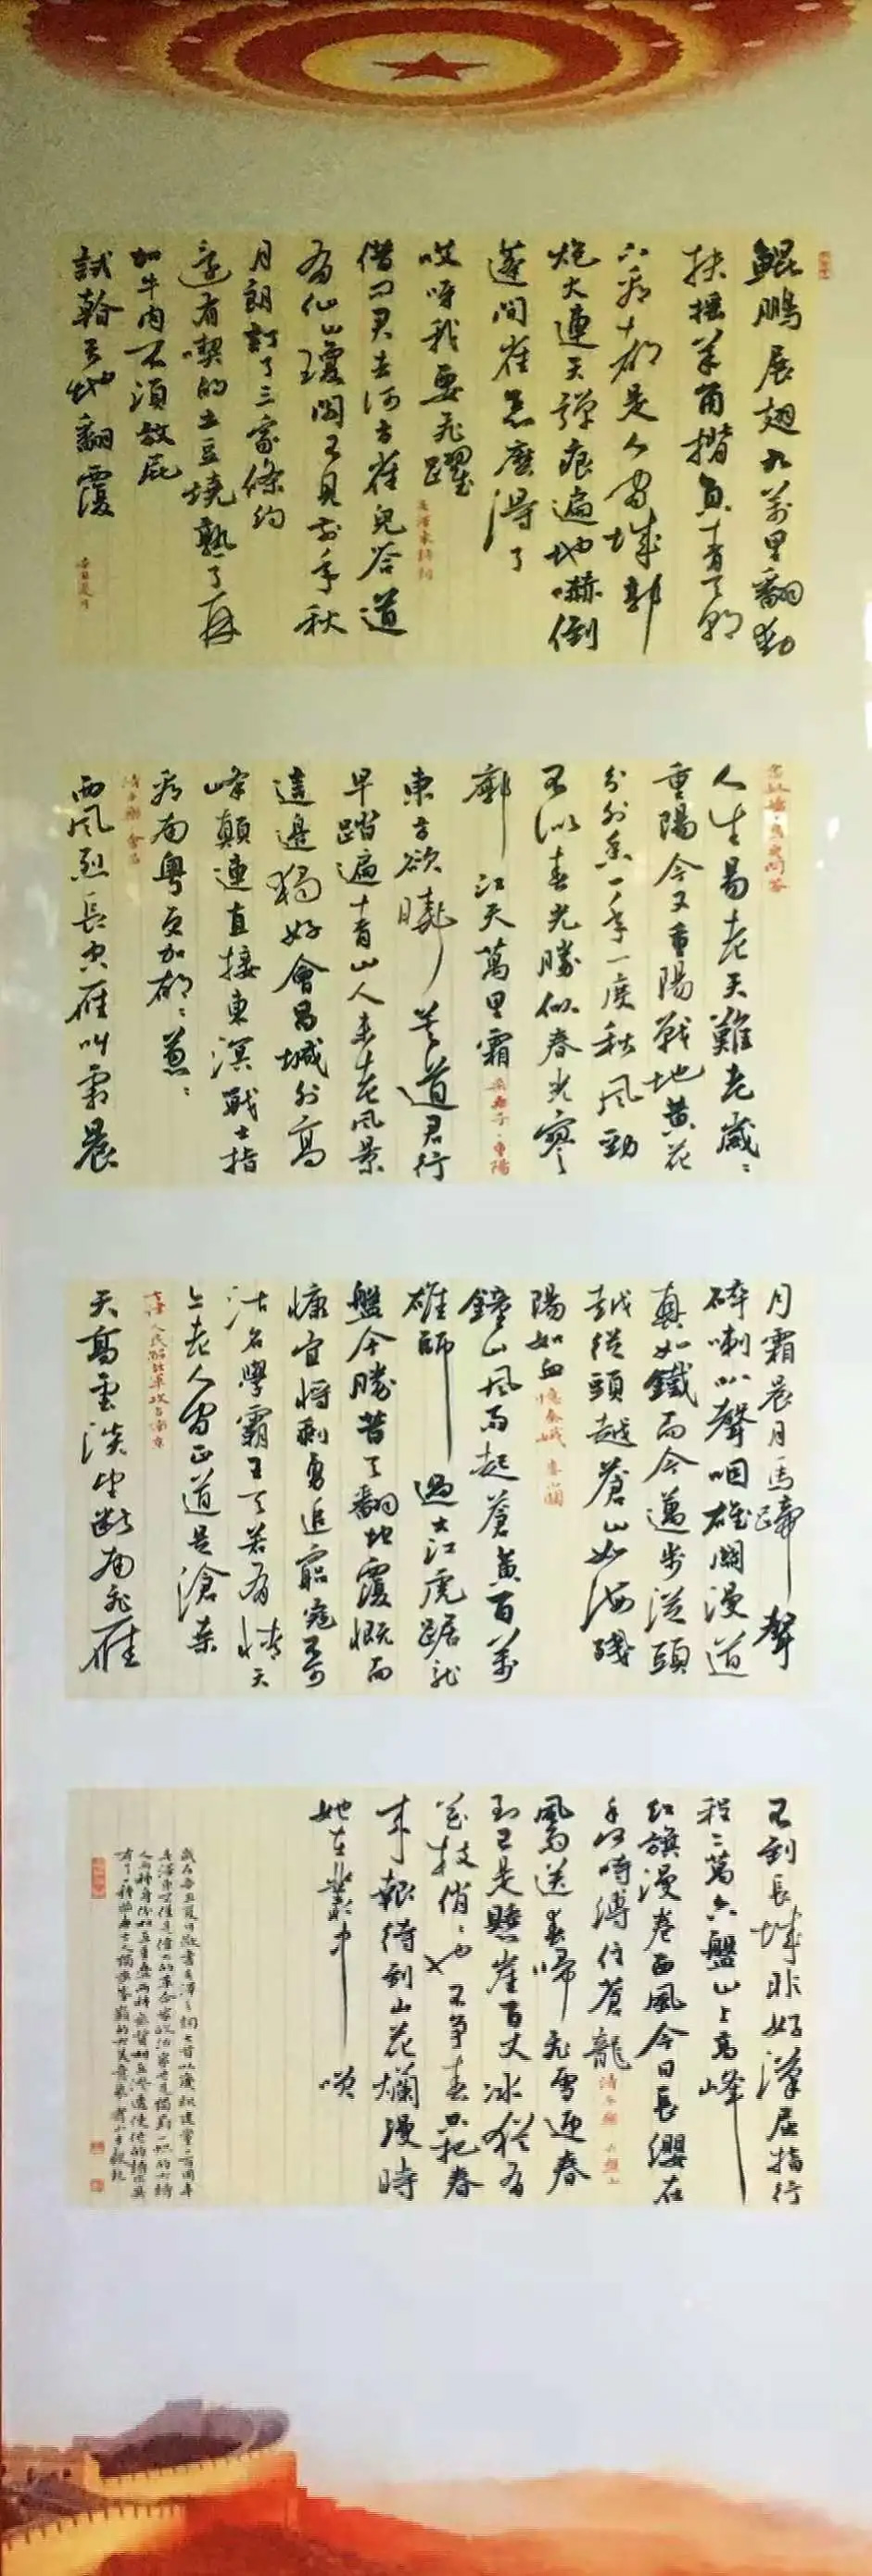 鯤鵬展翅九萬里翻動
扶摇羊角揹負青天朝
下看都是人间城郭
炮火連天彈痕遍地嚇倒
蓬間雀怎麽得了
哎呀我要飛躍
毛澤東詩詞
借问君去何方雀兒答道
有仙山瓊閣不見前年秋
月朗訂了三家條約
還有喫的土豆燒熟了再
加牛肉不須放屁
試看天地翻覆
念奴嬌·鳥兒問答
人生易老天難老歲歲
重陽今又重陽戰地黄花
分外香一年一度秋風勁
不似春光勝似春光寥
廓江天萬里霜
采桑子·重陽
東方欲曉莫道君行
早踏遍青山人未老風景
這邊獨好會昌城外高
峰顛連直接東溟戰士指
看南粤更加郁郁葱葱
清平樂 會昌
西風烈長空雁叫霜晨
月霜晨月馬蹄聲
碎喇叭聲咽雄關漫道
真如鐵而今邁步從頭
越從頭越蒼山如海殘
陽如血
憶秦娥 婁山關
鐘山風雨起蒼黄百萬
雄師過大江虎踞龍
盤今勝昔天翻地覆慨而
慷宜將剩勇追窮寇不可
沽名學霸王天若有情天
亦老人间正道是滄桑
七律 人民解放軍攻占南京
天高雲淡望斷南飛雁
不到長城非好漢屈指行
程二萬六盤山上高峰
红旗漫卷西風今日長纓在
手何時縛住蒼龍
清平樂 六盤山
風雨送春歸飛雪迎春
到已是懸崖百丈冰猶有
花枝俏俏也不争春只把春
來報待到山花爛漫時
她在叢中笑